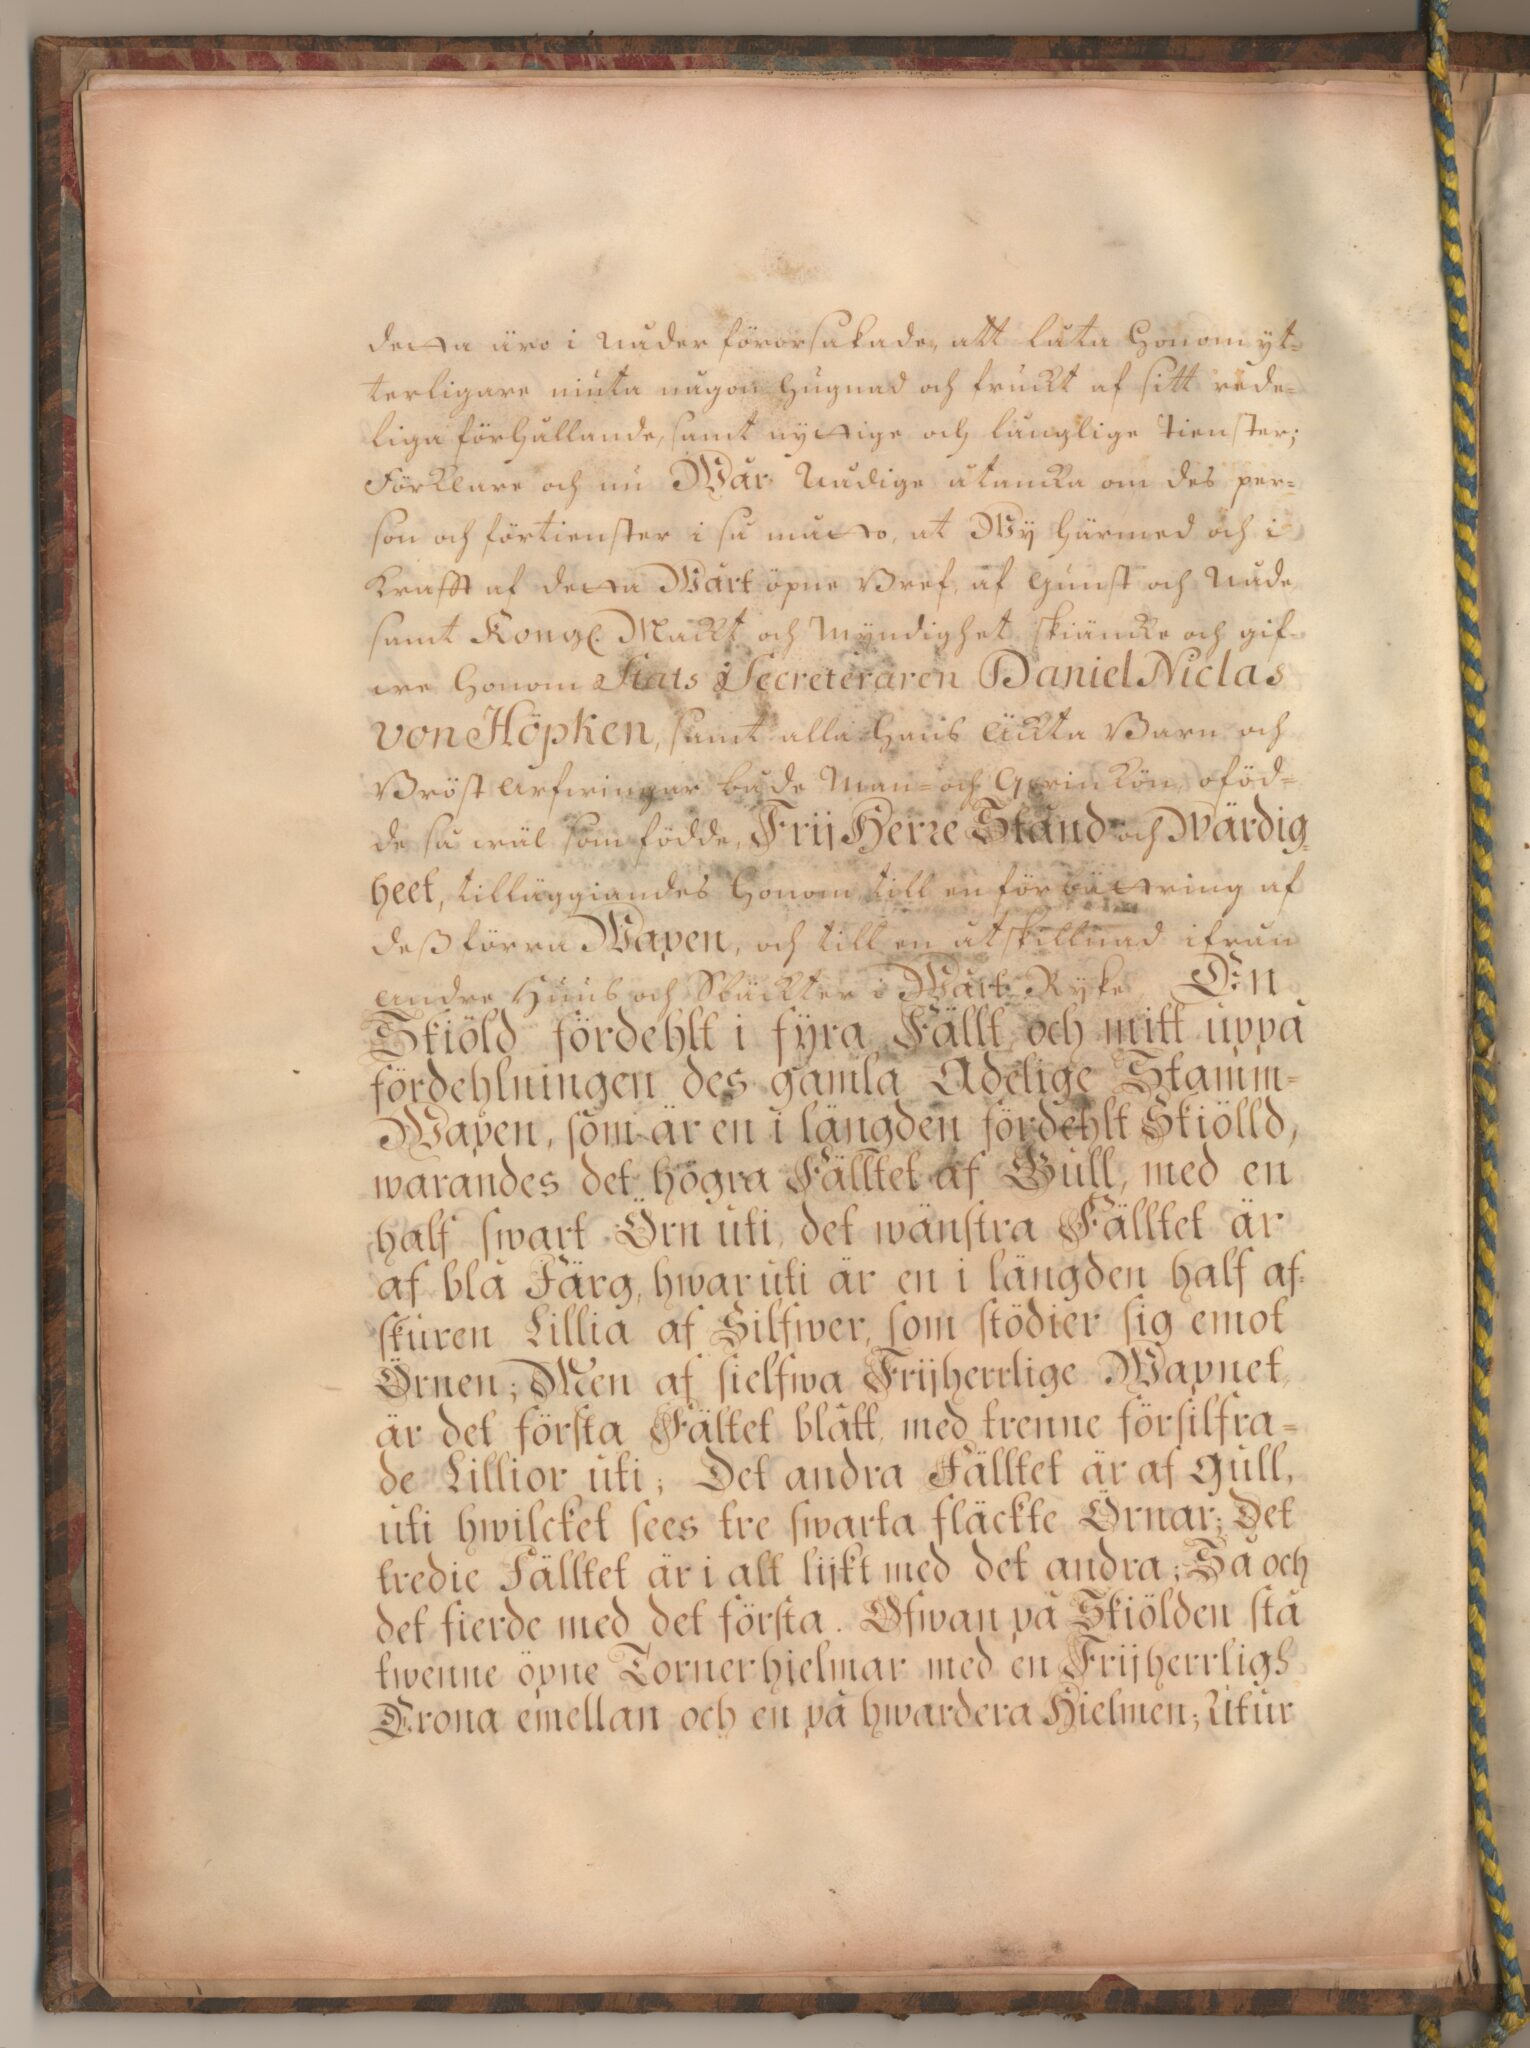 detta äro i Nåder förorsakade, att låta Honom yt-
terligare niuta någon Hugnad och fruckt af sitt rede-
liga förhållande, samt nyttige och långlige tienster;
Förklare och nu Wår Nådige åtancka om des per-
son och förtienster i så matto, at Wy härmed och i
Krafft af detta Wårt öpne Bref, af Gunst och Nåde,
samt Kongl. Mackt och Myndighet skiäncke och gif-
we Honom Stats Secreteraren Daniel Niclas
von Höpken, samt alla Hans äckta Barn och
Bröst Arfwingar både Man- och Qwinkön, oföd-
de så wäl som födde, Frij Herre Stånd och wärdig-
heet, tilläggiandes Honom till en förbättring af
deß förra Wapen, och till en åtskillnad ifrån
andre Huus och Släckter i Wårt Ryke, En
Skiöld fördehlt i fyra Fällt, och mitt uppå
fördehlningen des gamla Adelige Stamm-
Wapen, som är en i längden fördehlt Skiölld,
warandes det högra Fälltet af Gull, med en
half swart Örn uti, det wänstra Fälltet är
af blå Färg, hwaruti är en i längden half af-
skuren Lillia af Silfwer, som stödier sig emot
Örnen; Men af sielfwa Frijherrlige Wapnet,
är det första Fältet blått, med trenne försilfra-
de Lillior uti; Det andra Fälltet är af gull,
uti hwilcket sees tre swarta fläckte Örnar; Det
tredie Fälltet är i alt lijkt med det andra; Så och
det fierde med det första. Ofwan på Skiölden stå
twenne öpne Tornerhielmar med en Frijherrligh
Crona emellan och en på hwardera Hielmen; Utur